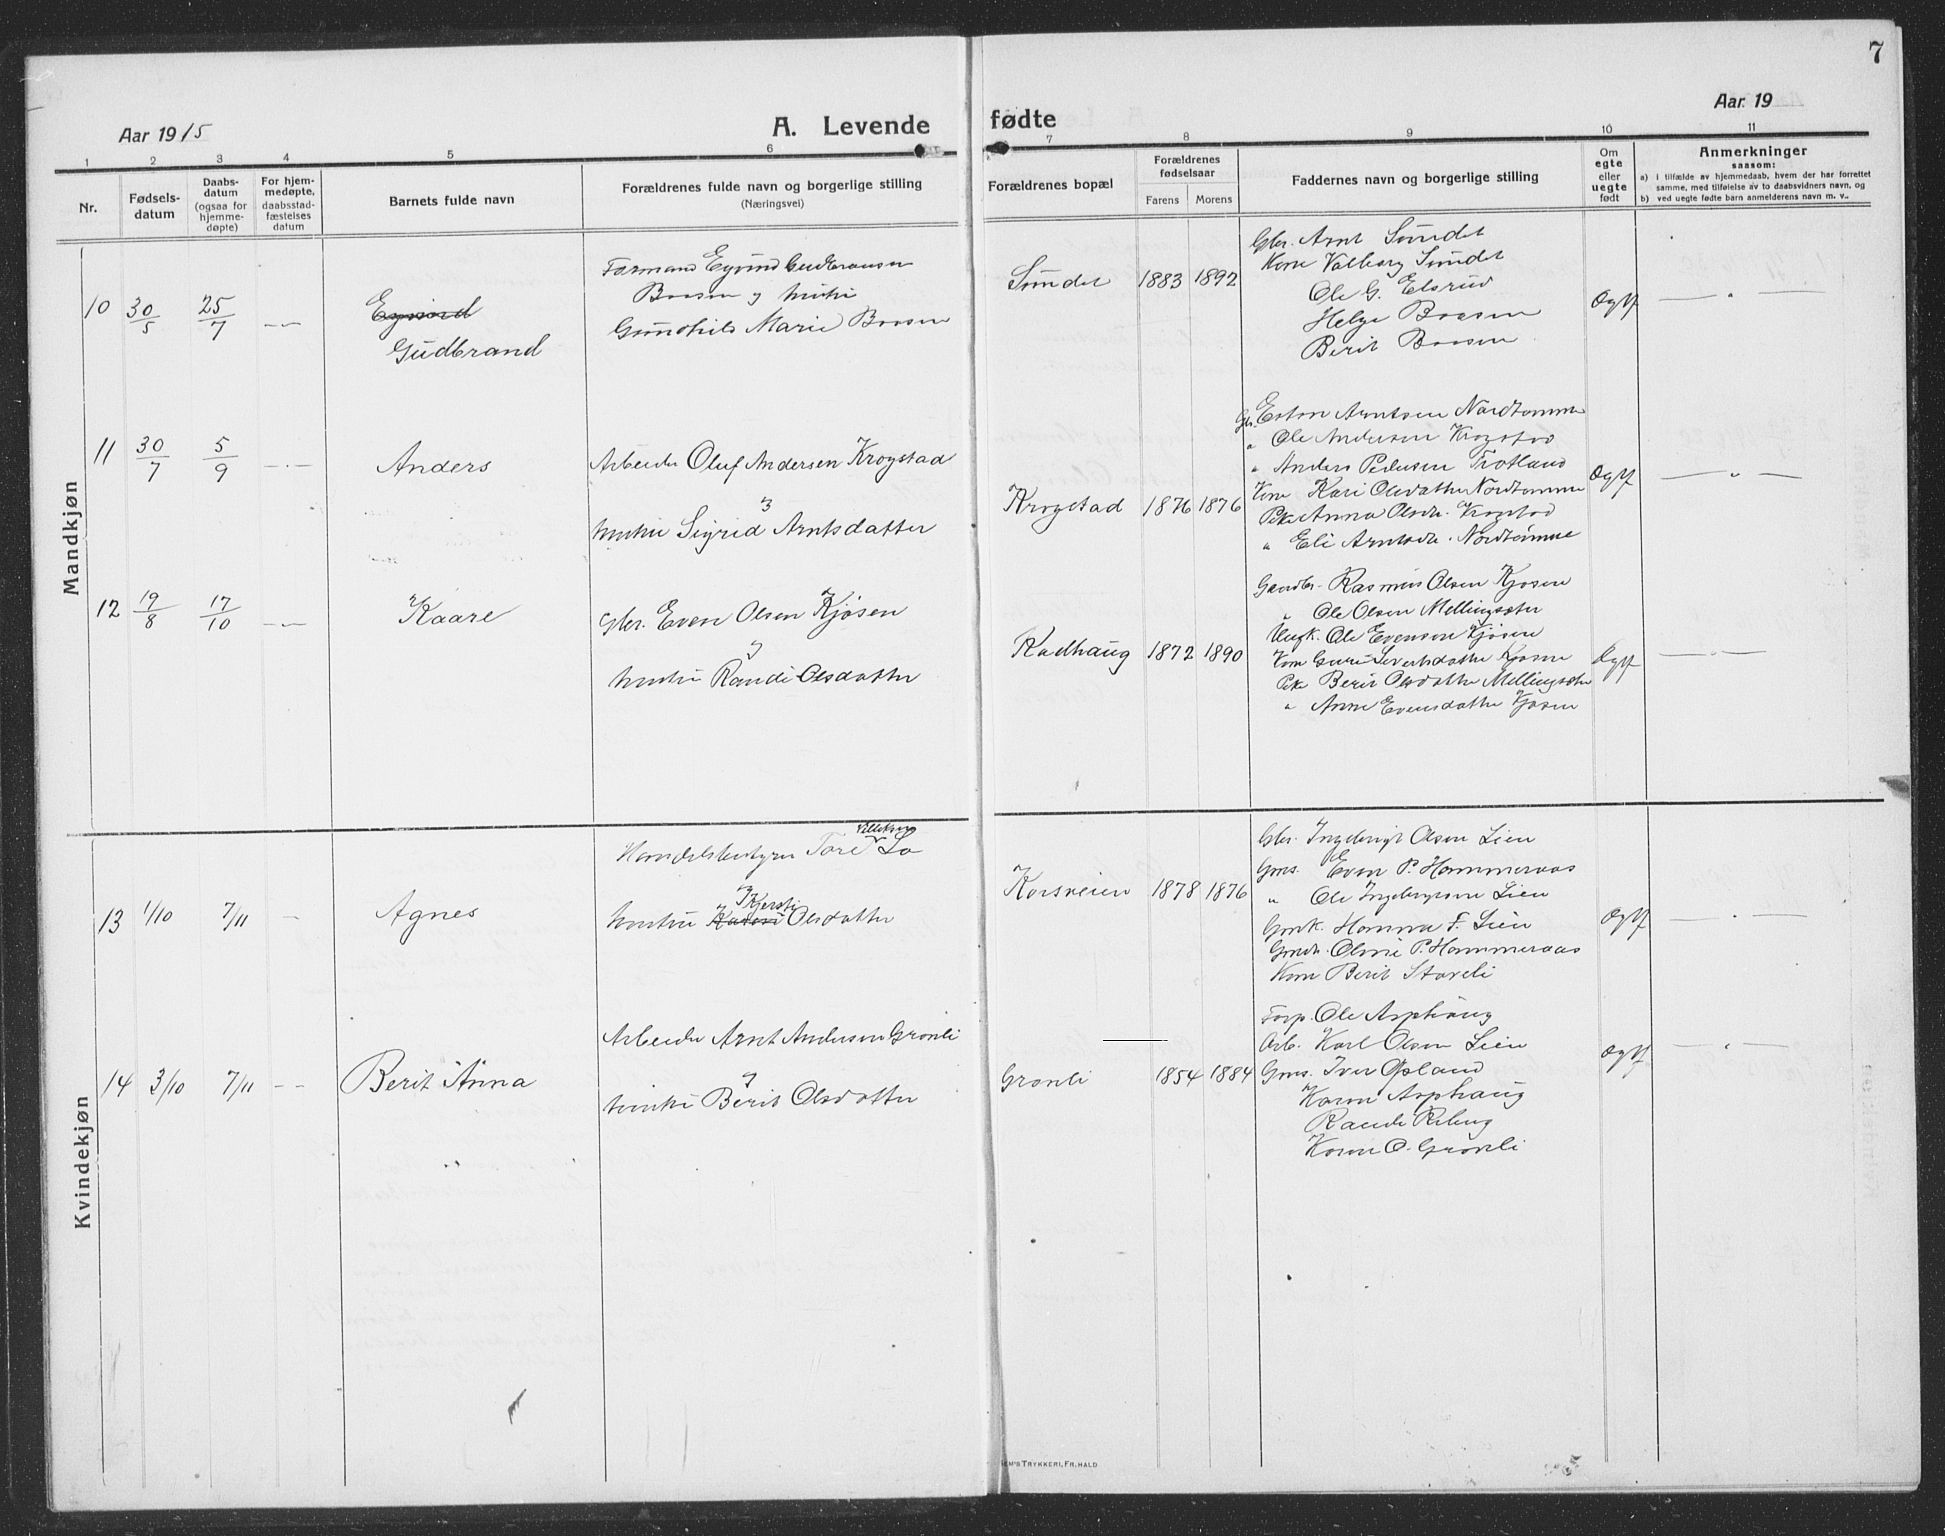 7
Aar 1915
A. Levende
fødte
Aar. 19
1 2 3 4 5 6 7 8 9 10 11
Nr.
Fødsels-
datum
Daabs-
datum
(ogsaa for
hjemme-
døpte)
For hjem-
medøpte,
daabsstad-
fæstelses
datum
Barnets fulde navn
Forældrenes fulde navn og borgerlige stilling
(Næringsvei)
Forældrenes bopæl
Forældrenes
fødselsaar
Farens Morens
Faddernes navn og borgerlige stilling
Om
egte
eller
uegte
født
Anmerkninger
saasom:
a) i tilfælde av hjemmedaab, hvem der har forrettet
samme, med tilføielse av to daabsvidners navn, og
b) ved uegte fødte barn anmelderens navn m. v..
Mandkjøn
10 30/5 25/7 —„—
Eyvind
Gudbrand
Formand Eyvind Gudbransen
Boasen og hustru
Gunhild Marie Boasen
Sundet 1883 1892
Gbr. Arnt Sundet
Kone Valborg Sundet
Ole G. Elsrud
Helge Boasen
Berit Boasen
Ægtf — „ —
11 30/7 5/9 —„—
Anders
Arbeider Oluf Andersen Krogstad
og
hustru Sigrid Arntsdatter
Krogstad 1876 1876
Gbr. Eston Arntsen Nordtømme
„ Ole Andersen Krogstad
„ Anders Pedersen Trotland
Kone Kari Olsdatter Nordtømme
Pike Anna Olsdr. Krogstad
„ Eli Arntsdr. Nordtømme
Ægtf — „ —
12 19/8 17/10 —„—
Kaare
Gbr. Even Olsen Kjøsen
og
hustru Randi Olsdatter
Rødhaug 1872 1890
Gaardbr. Rasmus Olsen Kjøsen
„ Ole Olsen Mellingsæter
Ungk. Ole Evensen Kjøsen
Kone Guri Sivertsdatter Kjøsen
Pike Berit Olsdatter Mellingsæter
„ Anne Evensdatter Kjøsen
Ægtf — „ —
Kvindekjøn
13 1/10 7/11 —
Agnes
Handelsbestyrer Tore Lo
og Kjersti
hustru Olsdatter
Korsveien 1878 1876
Gbr. Ingebrigt Olsen Lien
Gms. Even P. Hammeraas
„ Ole Ingebrigtsen Lien
Gmk. Hanna F. Lien
Gmdr. Oline P. Hammeraas
Kone Berit Staveli
Ægtf — „ —
14 3/10 7/11 — —
Berit Anna
Arbeider Arnt Andersen Grønli
og
hustru Berit Olsdatter
Grønli 1854 1884
Forp. Ole Asphaug
Arb. Karl Olsen Lien
Gms. Iver Opland
Karen Asphaug
Randi
Karen O. Grønli
Ægtf — „ —
SEM'S TRYKKERI, FR.HALD